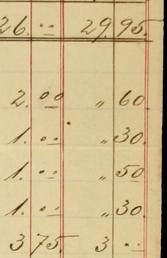 26. " 29.95.
2. 00 " 60
1. " " 30
1. " " 50
1. " " 30
3 75. 3 "